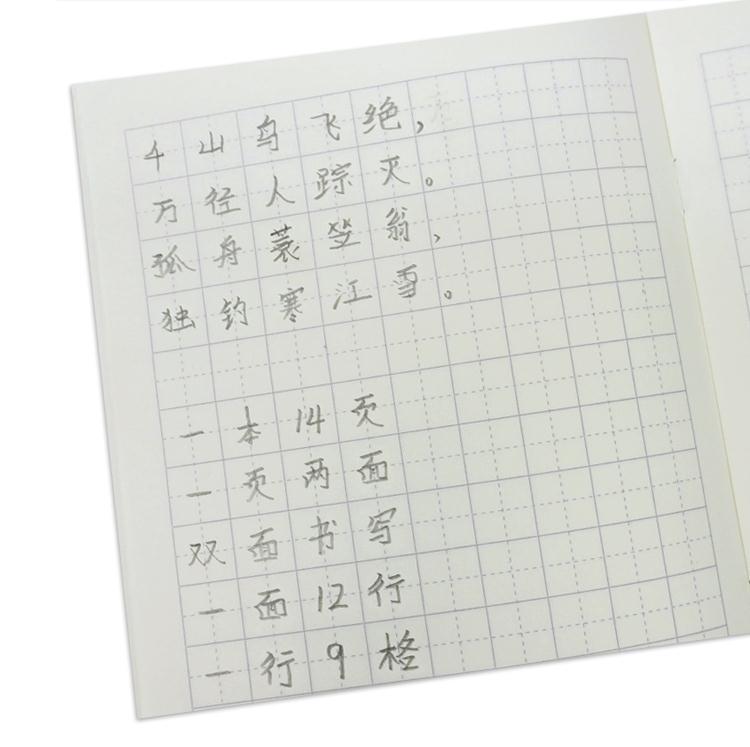 千山鸟飞绝，
万径人踪灭。
孤舟蓑笠翁，
独钓寒江雪。
一本14页
一页两面
双面书写
一面12行
一行9格